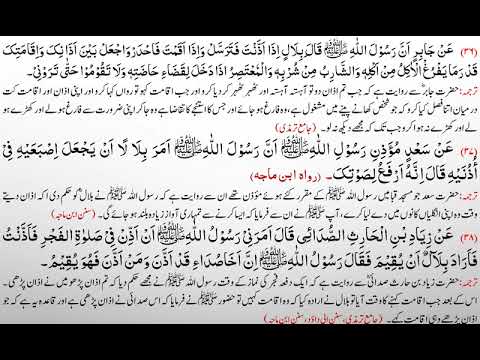 (۳۶) عَنْ جَابِرٍ اَنَّ رَسُوْلَ اللهِ ﷺ قَالَ بِلَالٍ اِذَا اَذَّنْتَ فَتَرَسَّلْ وَاِذَا اَقَمْتَ فَاحْدُرْ وَاجْعَلْ بَيْنَ اَذَانِكَ وَاِقَامَتِكَ
قَدْرَ مَا يَفْرُغُ الْاٰكِلُ مِنْ اَكْلِهٖ وَالشَّارِبُ مِنْ شُرْبِهٖ وَالْمُعْتَصِرُ اِذَا دَخَلَ لِقَضَاءِ حَاجَتِهٖ وَلَا تَقُوْمُوْا حَتّٰى تَرَوْنِيْ۔
ترجمہ: حضرت جابرؓ سے روایت ہے کہ جب تم اذان دو تو آہستہ آہستہ اور ٹھہر ٹھہر کر دیا کرو اور جب اقامت کہو تو رواں کہا کرو اور اپنی اذان اور اقامت کے
درمیان اتنا فصل کیا کرو کہ جو شخص کھانے پینے میں مشغول ہے، وہ فارغ ہو جائے اور جس کو استنجے کا تقاضا ہے وہ جا کر اپنی ضرورت سے فارغ ہولے اور کھڑے ہو
لے اور کھڑے نہ ہوا کرو جب تک کہ مجھے دیکھ نہ لو۔ (جامع ترمذی)
(۳۷) عَنْ سَعْدٍ مُؤَذِّنِ رَسُوْلِ اللهِ ﷺ اَنَّ رَسُوْلَ اللهِ ﷺ اَمَرَ بِلَا لًا اَنْ يَجْعَلَ اِصْبَعَيْهِ فِيْ
اُذُنَيْهِ قَالَ اِنَّهٗ اَرْفَعُ لِصَوْتِكَ۔ (رواه ابن ماجه)
ترجمہ: حضرت سعد جو مسجد قبا میں رسول اللہ ﷺ کے مقرر کئے ہوئے مؤذن تھے ان سے روایت ہے کہ رسول اللہ ﷺ نے بلالؓ کو حکم دیا کہ اذان دیتے
وقت وہ اپنی انگلیاں کانوں میں دے لیا کریں، آپ ﷺ نے ان سے فرمایا کہ ایسا کرنے سے تمہاری آواز زیادہ بلند ہو جائے گی۔ (سنن ابن ماجہ)
(۳۸) عَنْ زِيَادِ بْنِ الْحَارِثِ الصُّدَائِيْ قَالَ اَمَرَنِيْ رَسُوْلُ اللهِ ﷺ اَنْ اَذِّنْ فِيْ صَلٰوةِ الْفَجْرِ فَاَذَّنْتُ
فَاَرَادَ بِلَالٌ اَنْ يُقِيْمَ فَقَالَ رَسُوْلُ اللهِ ﷺ اِنَّ اَخَا صُدَاءٍ قَدْ اَذَّنَ وَمَنْ اَذَّنَ فَهُوَ يُقِيْمُ۔
ترجمہ: حضرت زیاد بن حارث صدائیؓ سے روایت ہے کہ ایک دفعہ فجر کی نماز کے وقت رسول اللہ ﷺ نے مجھے حکم دیا کہ تم اذان پڑھو میں نے اذان پڑھی۔
اس کے بعد جب اقامت کہنے کا وقت آیا تو بلال نے ارادہ کیا کہ وہ اقامت کہیں تو حضور ﷺ نے فرمایا کہ اس صدائی نے اذان پڑھی ہے اور قاعدہ یہ ہے کہ جو
اذان پڑھے وہی اقامت کہے۔ (جامع ترمذی، سنن ابی داؤد، سنن ابن ماجہ)